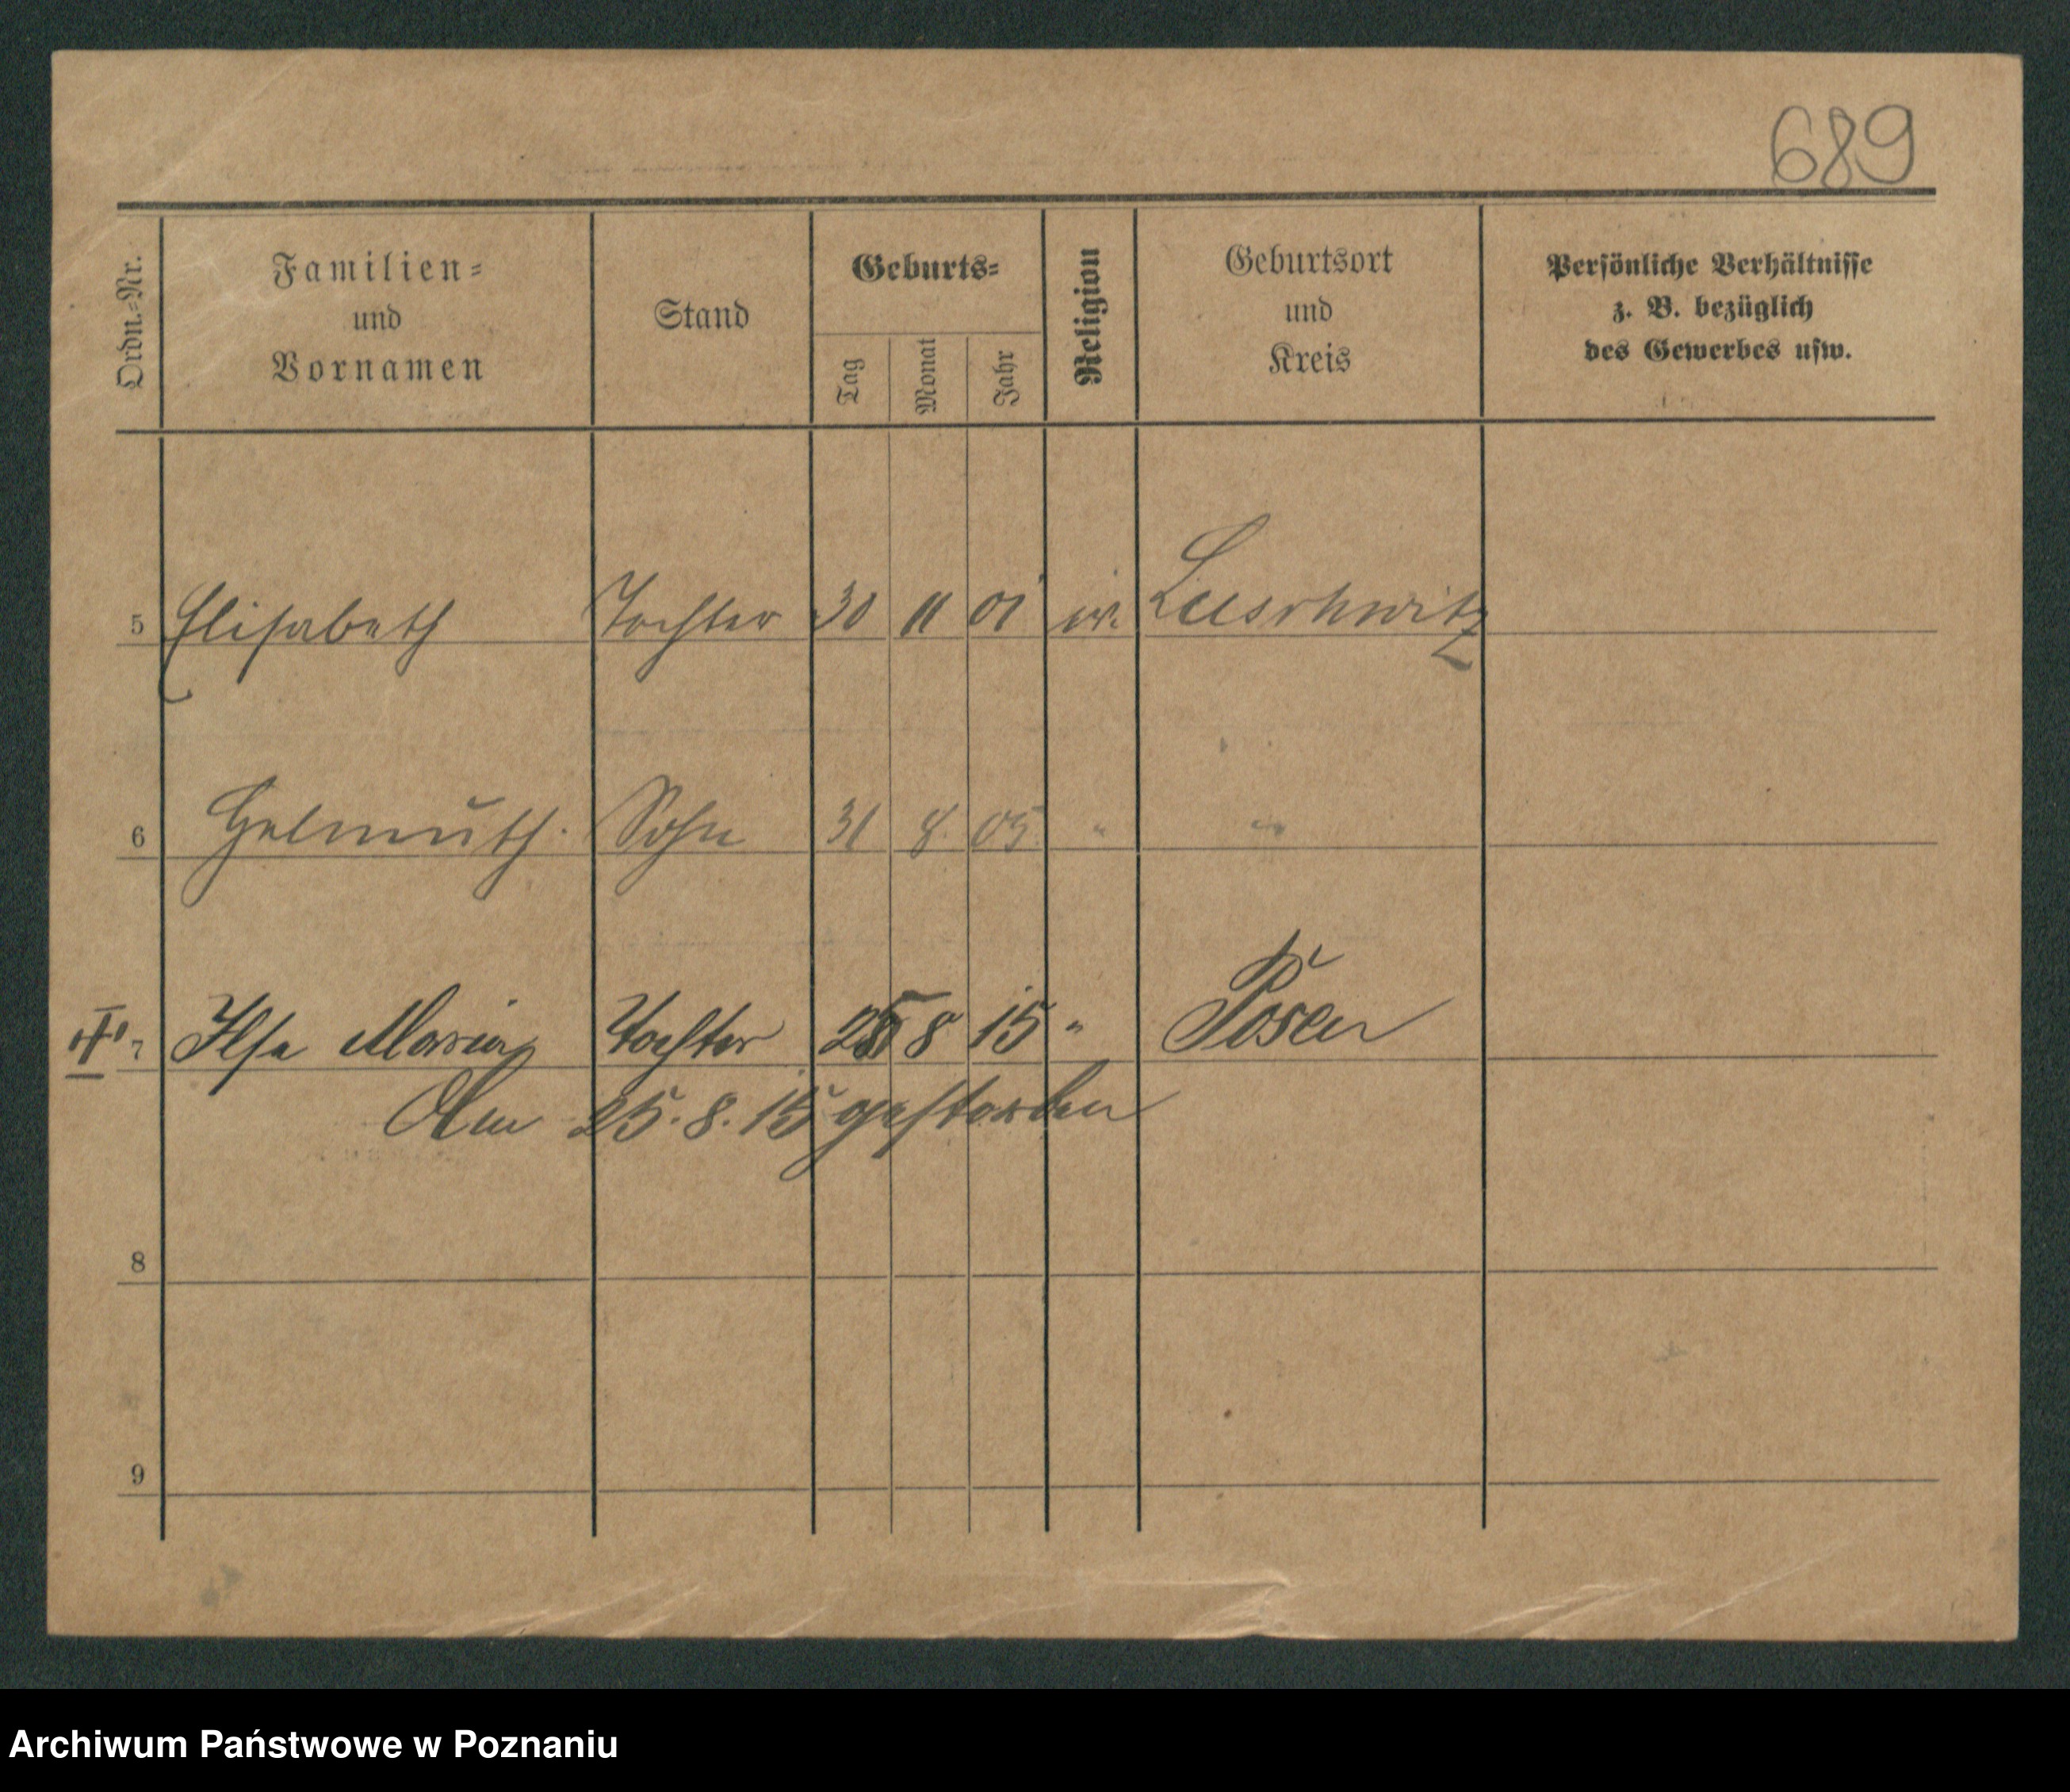 689
Ordn.=Nr. Familien= und Vornamen Stand Geburts= Tag Monat Jahr Religion Geburtsort und Kreis Persönliche Verhältnisse z. B. bezüglich des Gewerbes usw.
5 Elisabeth Tochter 30 11 01 ev. Luschwitz
6 Helmuth. Sohn 31 8. 05 " "
7 Ilse Maria Tochter 25 8 15 " Posen
Am 25. 8. 15 gestorben
8
9
Archiwum Państwowe w Poznaniu